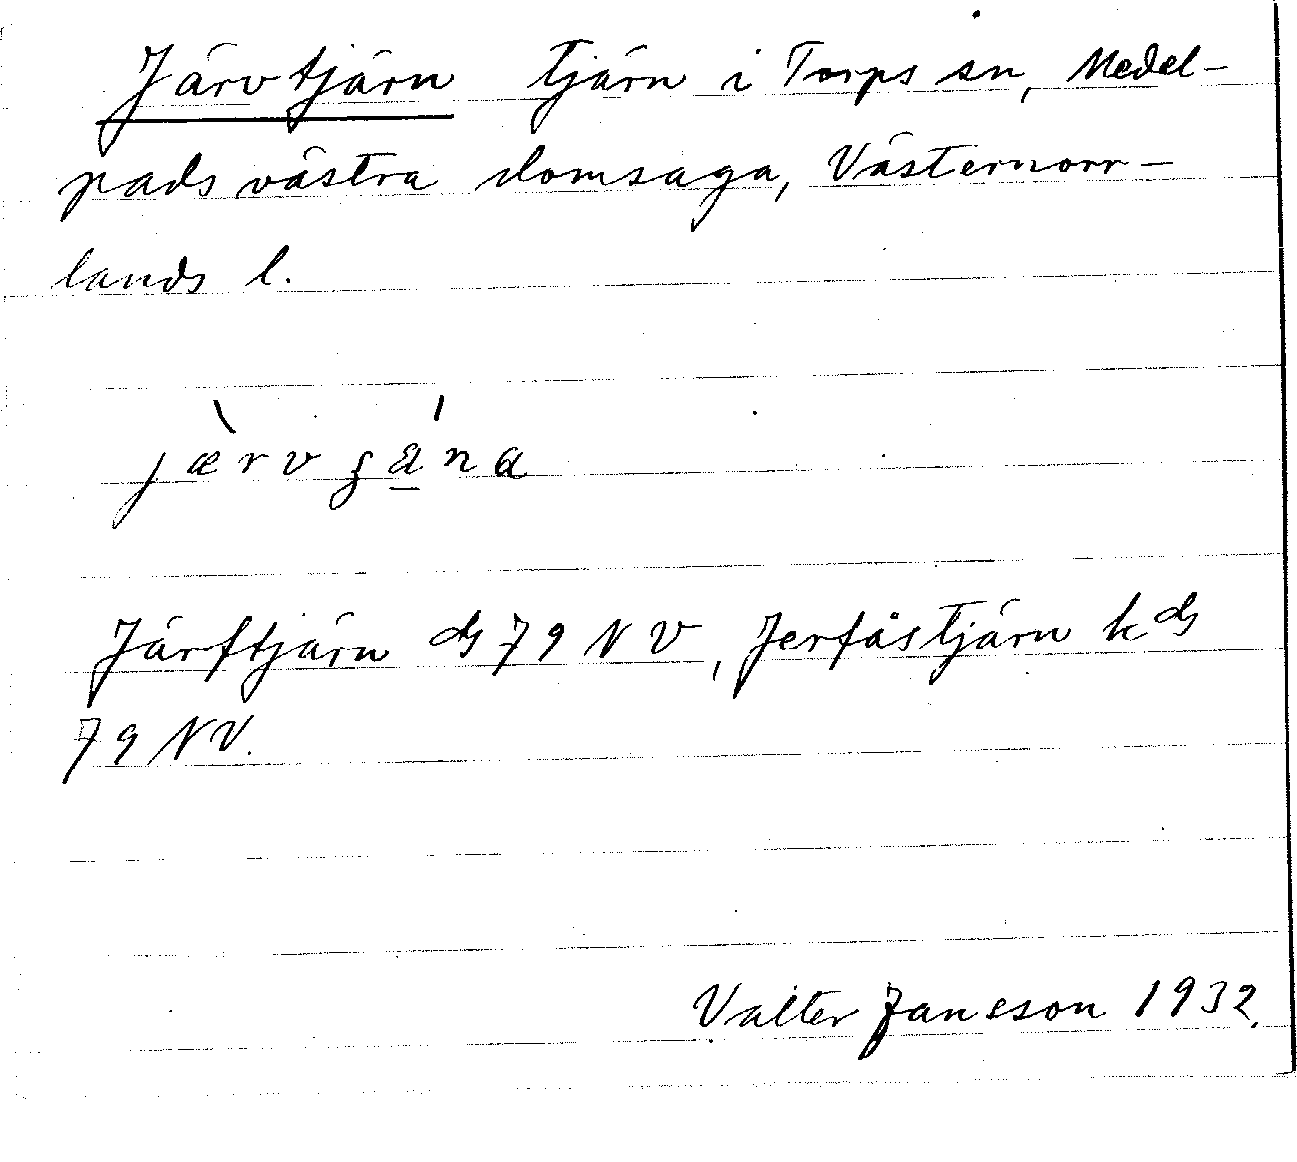 Järvtjärn tjärn i Torps sn, Medel-
pads västra domsaga, Västernorr-
lands l.
Järftjärn ds 79 NV, Jerfåstjärn kds
79 NV.
Valter Janeson 1932.